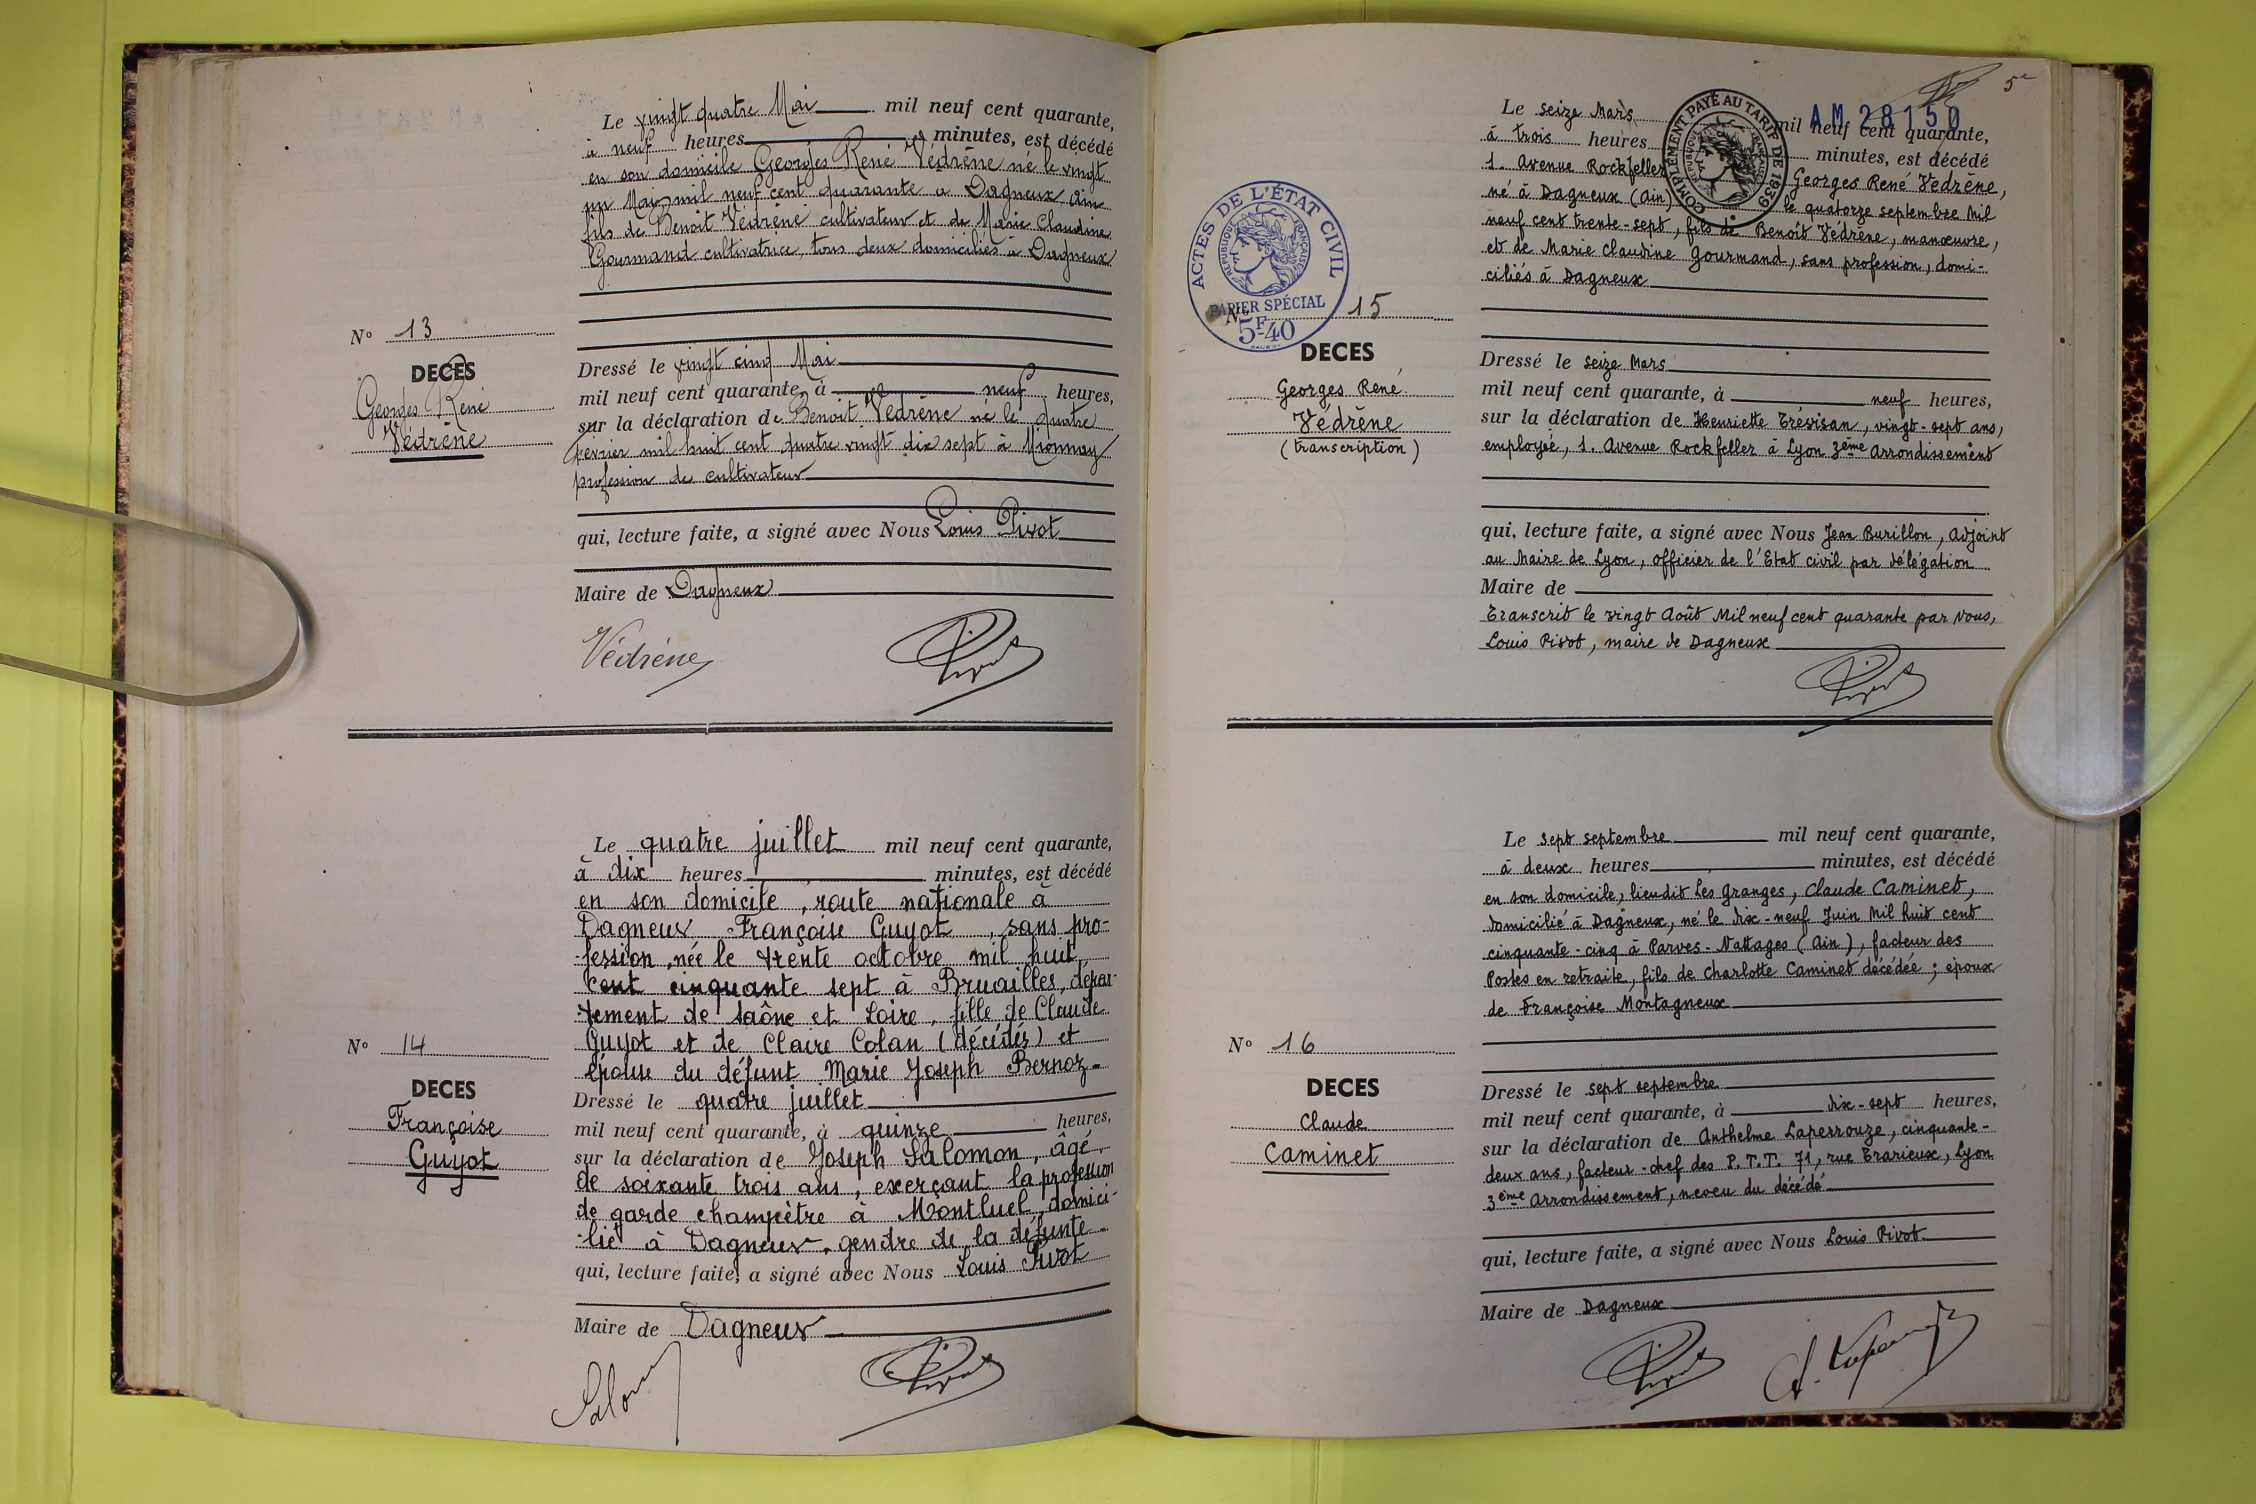 Le vingt quatre Mai mil neuf cent quarante,
à neuf heures minutes, est décédé
en son domicile Georges René Védrène né le vingt
un Mai mil neuf cent quarante à Dagneux Ain
fils de Benoit Védrène cultivateur et de Marie Claudine
Gourmand cultivatrice, tous deux domiciliés à Dagneux
N° 13
DECES
Georges René
Védrène
Dressé le vingt cinq Mai
mil neuf cent quarante, à neuf heures,
sur la déclaration de Benoit Védrène né le quatre
février mil huit cent quatre vingt dix sept à Mionnay
profession de cultivateur
qui, lecture faite, a signé avec Nous Louis Pivot
Maire de Dagneux
Védrène
Pivot
Le quatre juillet mil neuf cent quarante,
à dix heures minutes, est décédé
en son domicile, route nationale à
Dagneux Françoise Guyot, sans pro-
fession, née le trente octobre mil huit
cent cinquante sept à Bruailles, dépar-
tement de Saône et Loire, fille de Claude
Guyot et de Claire Colan (décédés) et
épouse du défunt Marie Joseph Bernoz-
N° 14
DECES
Françoise
Guyot
Dressé le quatre juillet
mil neuf cent quarante, à quinze heures,
sur la déclaration de Joseph Salomon, âgé
de soixante trois ans, exerçant la profession
de garde champêtre à Montluel, domici-
lié à Dagneux, gendre de la défunte
qui, lecture faite, a signé avec Nous Louis Pivot
Maire de Dagneux
Pivot
5e
AM 28150
COMPLÉMENT PAYÉ AU TARIF DE 1939
RÉPUBLIQUE FRANÇAISE
Le seize Mars mil neuf cent quarante,
à trois heures minutes, est décédé
1. Avenue Rockfeller Georges René Vedrène,
né à Dagneux (Ain) le quatorze septembre Mil
neuf cent trente-sept, fils de Benoît Védrène, manœuvre,
et de Marie Claudine Gourmand, sans profession, domi-
ciliés à Dagneux
ACTES DE L'ÉTAT CIVIL
RÉPUBLIQUE FRANÇAISE
PAPIER SPÉCIAL
5F40
N° 15
DECES
Georges René
Védrène
(transcription)
Dressé le seize Mars
mil neuf cent quarante, à neuf heures,
sur la déclaration de Henriette Trésisan, vingt-sept ans,
employée, 1. Avenue Rockfeller à Lyon 3ème Arrondissement
qui, lecture faite, a signé avec Nous Jean Burillon, Adjoint
au Maire de Lyon, officier de l'Etat civil par délégation
Maire de
Transcrit le vingt Août Mil neuf cent quarante par Nous,
Louis Pivot, maire de Dagneux
Pivot
Le sept septembre mil neuf cent quarante,
à deux heures minutes, est décédé
en son domicile, lieudit Les Granges, Claude Caminet,
domicilié à Dagneux, né le dix-neuf Juin Mil huit cent
cinquante-cinq à Parves-Nattages (Ain), facteur des
Postes en retraite, fils de Charlotte Caminet décédée ; époux
de Françoise Montagneux
N° 16
DECES
Claude
Caminet
Dressé le sept septembre
mil neuf cent quarante, à dix-sept heures,
sur la déclaration de Anthelme Laperrouze, cinquante-
deux ans, facteur-chef des P.T.T. 71, rue Trarieux, Lyon
3ème Arrondissement, neveu du décédé
qui, lecture faite, a signé avec Nous Louis Pivot
Maire de Dagneux
Pivot